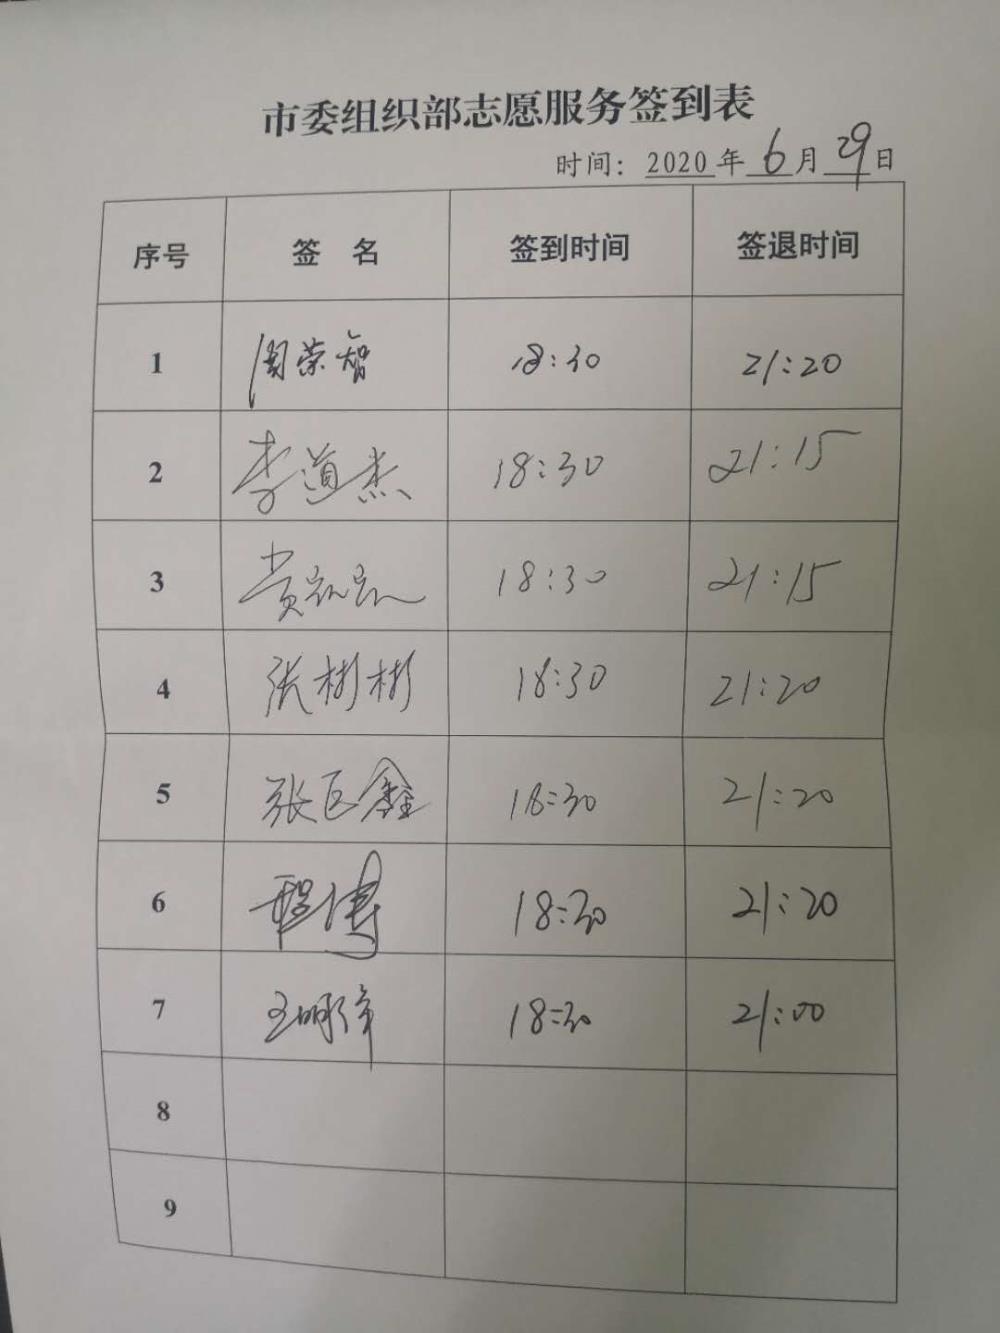 市委组织部志愿服务签到表
时间：2020年6月29日
序号 签 名 签到时间 签退时间
1 周荣智 18:30 21:20
2 李道杰 18:30 21:15
3 黄 18:30 21:15
4 张彬彬 18:30 21:20
5 张巨鑫 18:30 21:20
6 程 18:30 21:20
7 王 18:30 21:00
8
9